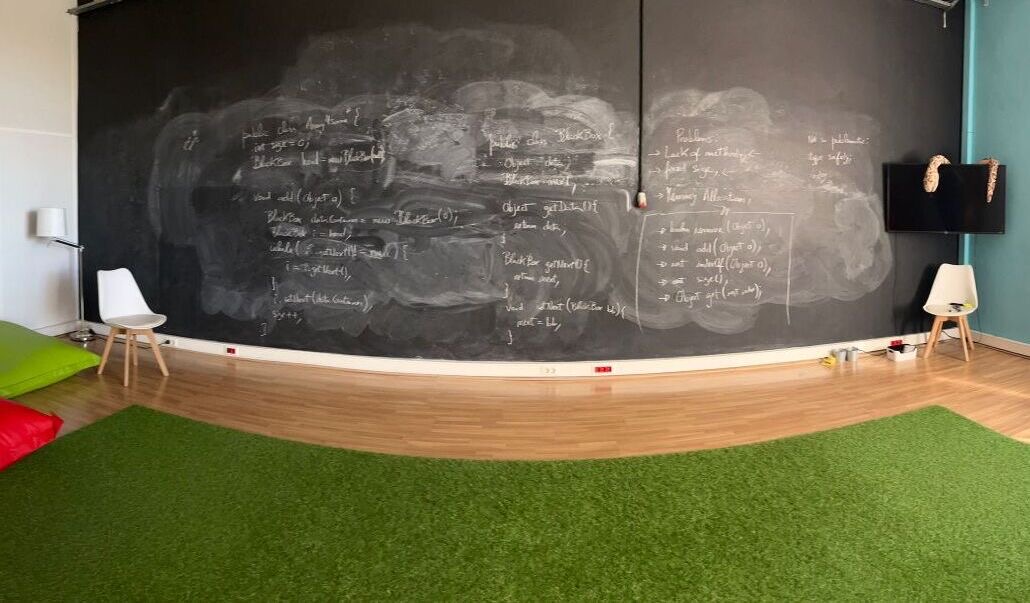 public class ArrayXtreme {
int size = 0;
BlackBox head = new BlackBox(null);
void add (Object o) {
BlackBox dataContainer = new BlackBox(o);
BlackBox i = head;
while( i.getNext() != null ) {
i = i.getNext();
}
i.setNext(dataContainer);
size++;
}
public class BlackBox {
Object data;
BlackBox next;
Object getData() {
return data;
}
BlackBox getNext() {
return next;
}
void setNext (BlackBox bb) {
next = bb;
}
Problems:
→ Lack of methods
→ fixed size,
→ Memory Allocation,
→ boolean remove (Object o),
→ void add (Object o),
→ int indexOf (Object o),
→ int size(),
→ Object get (int index),
Not a problematic:
type safety;